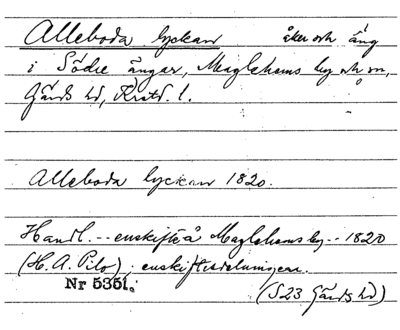 Alleboda lyckan åker och äng
i Södre ängar, Maglehems by och sn,
Gärds hd, Kristd. l.
Alleboda lyckan 1820.
Handl. -- enskifte å Maglehems by -- 1820
(H. A. Pilo); enskiftesdelningen.
Nr 5351.
(S23 Gärds hd)